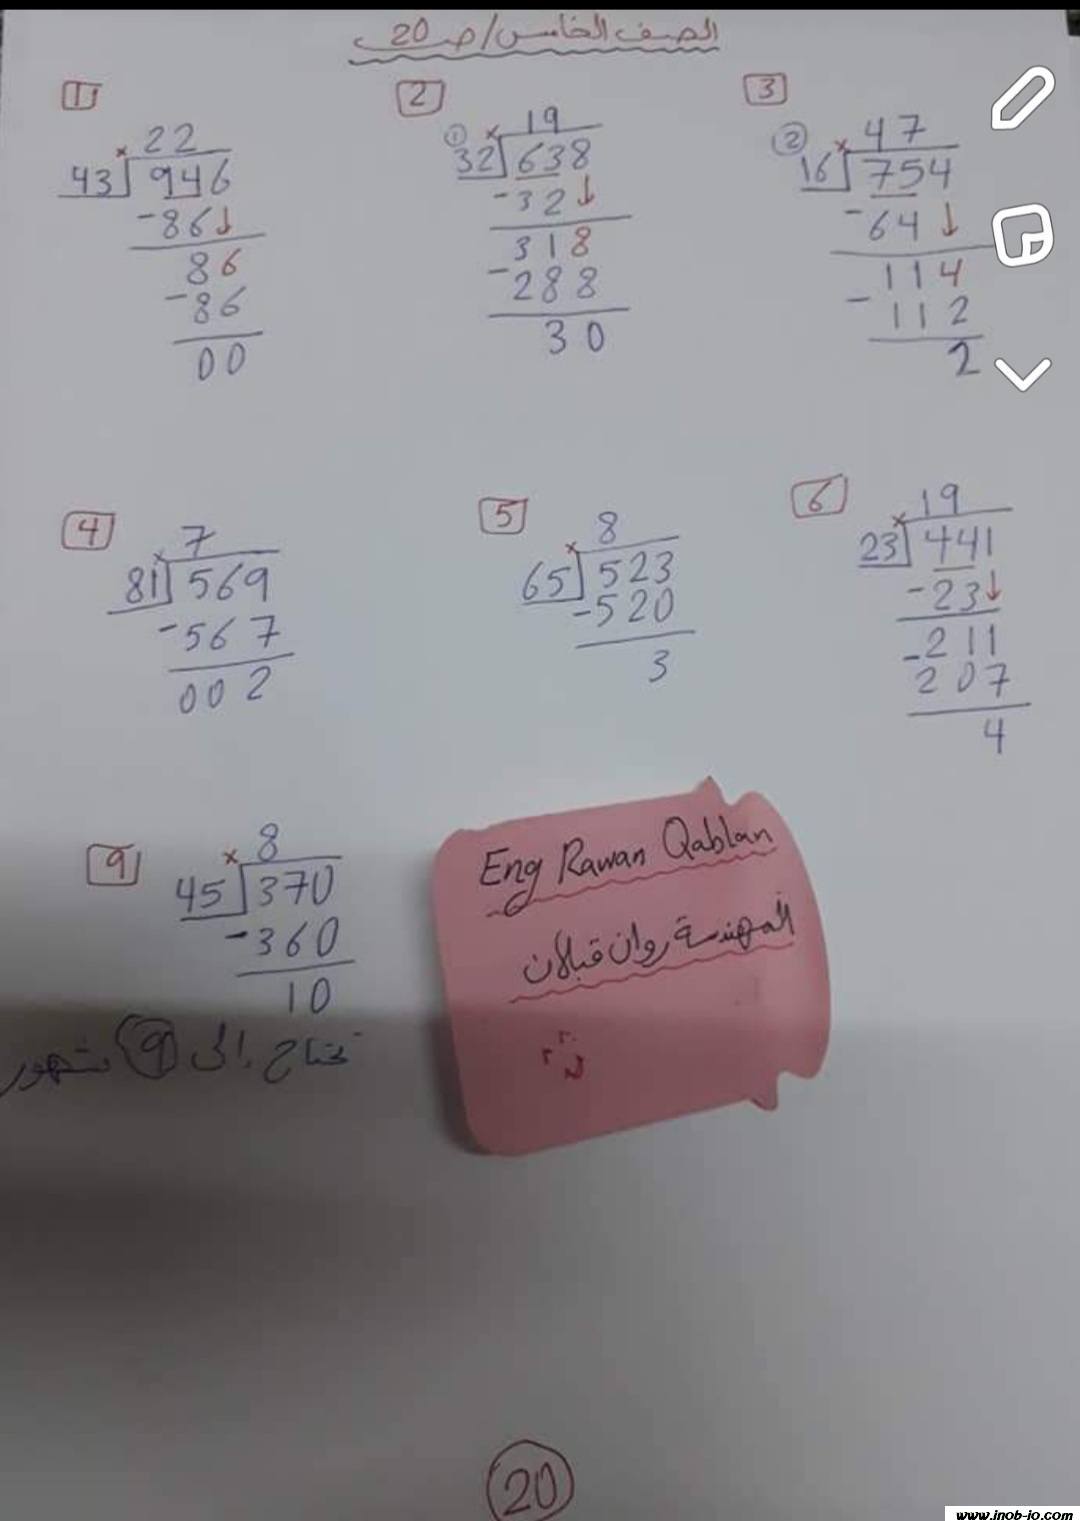 الصف الخامس / ص 20
1
22
43 946
-86
86
-86
00
2
19
① 32 638
-32
318
-288
30
3
47
② 16 754
-64
114
-112
2
4
7
81 569
-567
002
5
8
65 523
-520
3
6
19
23 441
-23
-211
207
4
9
8
45 370
-360
10
نحتاج إلى 9 شهور
Eng Rawan Qablan
المهندسة روان قبلان
20
www.inob-io.com